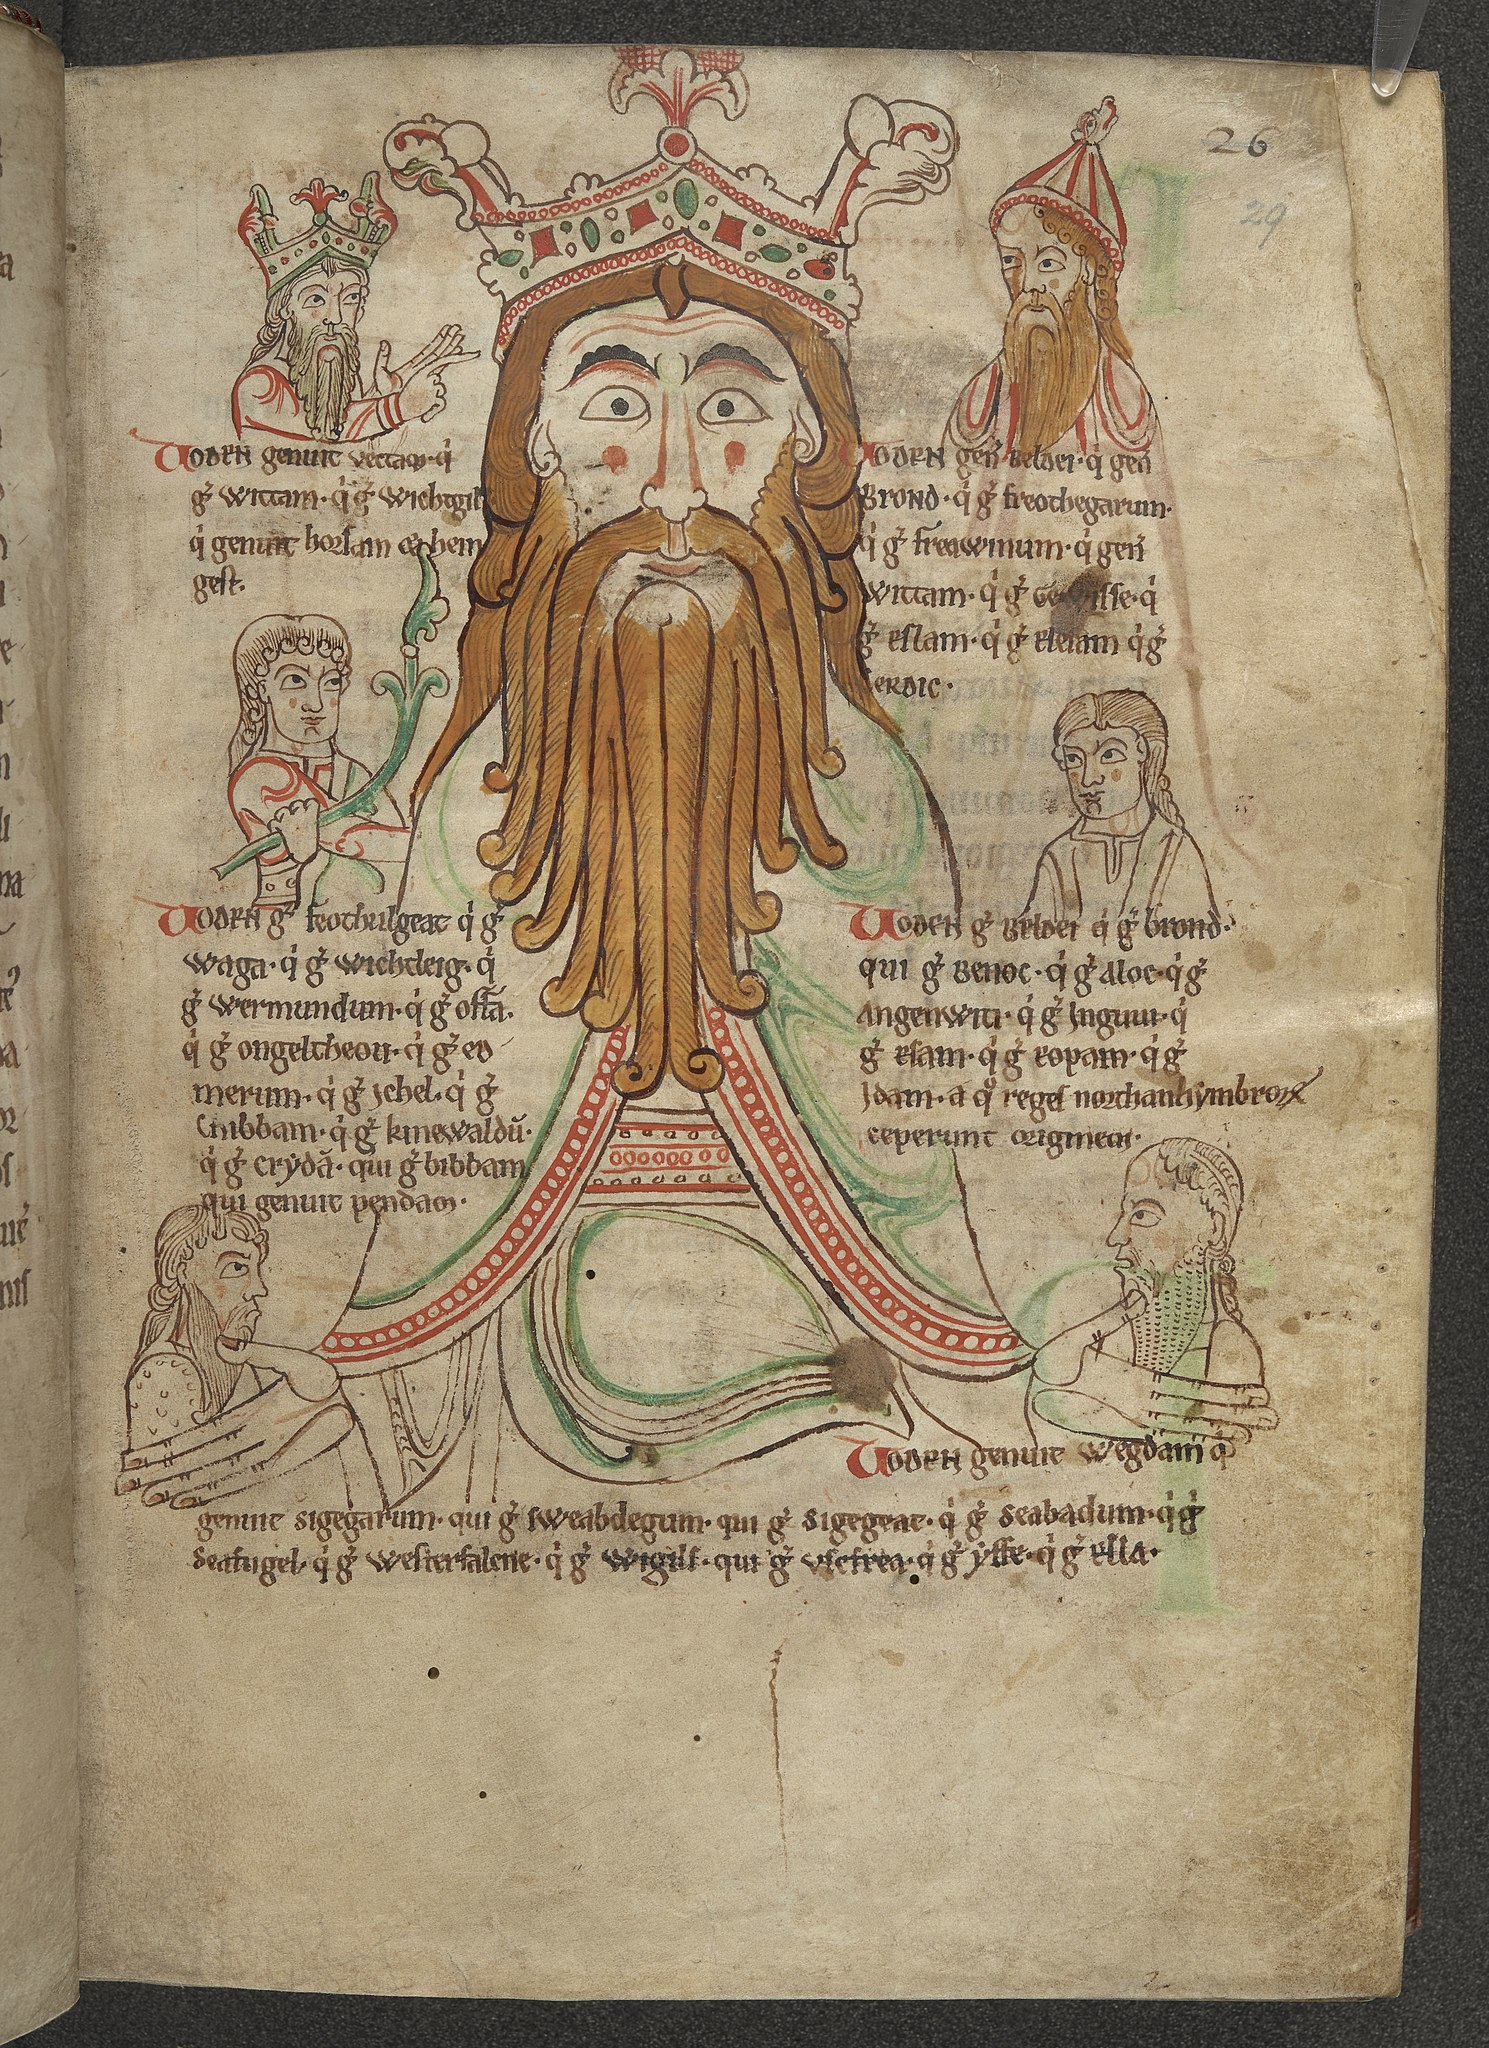 26
29
Woden genuit vectam · q̇
g̃ wittam · q̇ g̃ wichtgil
q̇ genuit horsam & hen
gest.
Woden geñ beldei · q̇ geñ
Brond · q̇ g̃ freothegarum ·
q̇ g̃ freawinum · q̇ geñ
wittam · q̇ g̃ gewisse · q̇
g̃ eslam · q̇ g̃ elesam q̇ g̃
cerdic ·
Woden g̃ feothulgeat q̇ g̃
waga · q̇ g̃ wichtleig · q̇
g̃ wermundum · q̇ g̃ offã ·
q̇ g̃ ongeltheou · q̇ g̃ eo
merum · q̇ g̃ ichel · q̇ g̃
cnibbam · q̇ g̃ kinewaldũ ·
q̇ g̃ crẏdã · qui g̃ bibbam
qui genuit pendam ·
Woden g̃ beldei q̇ g̃ brond ·
qui g̃ Benoc · q̇ g̃ aloc · q̇ g̃
angenwiti · q̇ g̃ inguui · q̇
g̃ esam · q̇ g̃ eopam · q̇ g̃
Idam · a qͦ reges northanhẏmbroꝝ
ceperunt originem ·
Woden genuit wegdam q̇
genuit sigegarum · qui g̃ sweabdegum · qui g̃ sigegeat · q̇ g̃ seabadum · q̇ g̃
seafugel · q̇ g̃ westerfalcne · q̇ g̃ wigils · qui g̃ uscfrea · q̇ g̃ ẏffe · q̇ g̃ ella ·